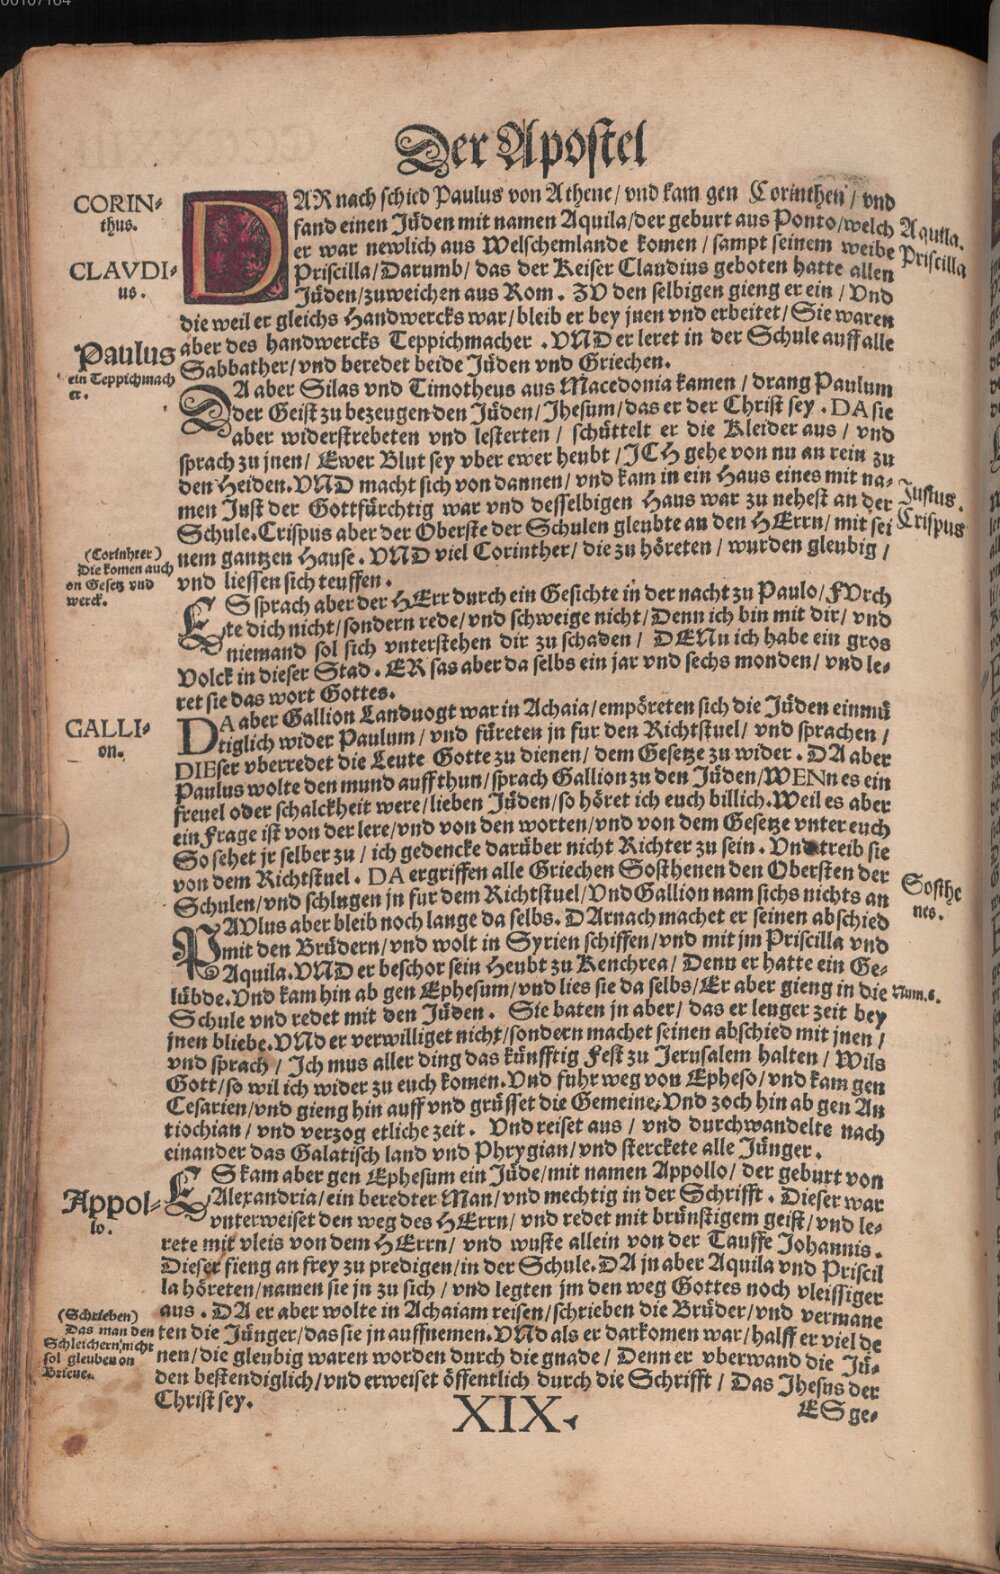 Der Apostel
CORIN-
thus.
CLAVDI-
us.
Paulus
ein Teppichmach
er.
(Corinhter)
Die komen auch
on Gesetz vnd
werck.
GALLI-
on.
Appol-
lo.
(Schrieben)
Das man den
Schleichern nicht
sol gleuben on
Brieue.
DAR nach schied Paulus von Athene/ vnd kam gen Corinthen/ vnd
fand einen Jüden mit namen Aquila/ der geburt aus Ponto/ welch
er war newlich aus Welschemlande komen/ sampt seinem weibe
Priscilla/ Darumb/ das der Keiser Claudius geboten hatte allen
Jüden/ zuweichen aus Rom. ZV den selbigen gieng er ein/ Vnd
die weil er gleichs Handwercks war/ bleib er bey jnen vnd erbeitet/ Sie waren
aber des handwercks Teppichmacher. VND er leret in der Schule auff alle
Sabbather/ vnd beredet beide Jüden vnd Griechen.
DA aber Silas vnd Timotheus aus Macedonia kamen/ drang Paulum
der Geist zu bezeugen den Jüden/ Jhesum/ das er der Christ sey. DA sie
aber widerstrebeten vnd lesterten/ schüttelt er die Kleider aus/ vnd
sprach zu jnen/ Ewer Blut sey vber ewer heubt/ JCH gehe von nu an rein zu
den Heiden. VND macht sich von dannen/ vnd kam in ein Haus eines mit na-
men Just der Gottfürchtig war vnd desselbigen Haus war zu nehest an der
Schule. Crispus aber der Oberste der Schulen gleubte an den HErrn/ mit sei
nem gantzen Hause. VND viel Corinther/ die zu höreten/ wurden gleubig/
vnd liessen sich teuffen.
ES sprach aber der HErr durch ein Gesichte in der nacht zu Paulo/ FVrch
te dich nicht/ sondern rede/ vnd schweige nicht/ Denn ich bin mit dir/ vnd
niemand sol sich vnterstehen dir zu schaden/ DENn ich habe ein gros
Volck in dieser Stad. ER sas aber da selbs ein jar vnd sechs monden/ vnd le-
ret sie das wort Gottes.
DA aber Gallion Landuogt war in Achaia/ empöreten sich die Jüden einmü
tiglich wider Paulum/ vnd füreten jn fur den Richtstuel/ vnd sprachen/
DIEser vberredet die Leute Gotte zu dienen/ dem Gesetze zu wider. DA aber
Paulus wolte den mund auffthun/ sprach Gallion zu den Jüden/ WENn es ein
freuel oder schalckheit were/ lieben Jüden/ so höret ich euch billich. Weil es aber
ein Frage ist von der lere/ vnd von den worten/ vnd von dem Gesetze vnter euch
So sehet jr selber zu/ ich gedencke darüber nicht Richter zu sein. Vnd treib sie
von dem Richtstuel. DA ergriffen alle Griechen Sosthenen den Obersten der
Schulen/ vnd schlugen jn fur dem Richtstuel/ Vnd Gallion nam sichs nichts an
PAVlus aber bleib noch lange da selbs. DArnach machet er seinen abschied
mit den Brüdern/ vnd wolt in Syrien schiffen/ vnd mit jm Priscilla vnd
Aquila. VND er beschor sein Heubt zu Kenchrea/ Denn er hatte ein Ge-
lübde. Vnd kam hin ab gen Ephesum/ vnd lies sie da selbs/ Er aber gieng in die
Schule vnd redet mit den Jüden. Sie baten jn aber/ das er lenger zeit bey
jnen bliebe. VNd er verwilliget nicht/ sondern machet seinen abschied mit jnen/
vnd sprach/ Ich mus aller ding das künfftig Fest zu Jerusalem halten/ Wils
Gott/ so wil ich wider zu euch komen. Vnd fuhr weg von Epheso/ vnd kam gen
Cesarien/ vnd gieng hin auff vnd grüsset die Gemeine. Vnd zoch hin ab gen An
tiochian/ vnd verzog etliche zeit. Vnd reiset aus/ vnd durchwandelte nach
einander das Galatisch land vnd Phrygian/ vnd sterckete alle Jünger.
ES kam aber gen Ephesum ein Jüde/ mit namen Appollo/ der geburt von
Alexandria/ ein beredter Man/ vnd mechtig in der Schrifft. Dieser war
vnterweiset den weg des HErrn/ vnd redet mit brünstigem geist/ vnd le-
rete mit vleis von dem HErrn/ vnd wuste allein von der Tauffe Johannis.
Dieser fieng an frey zu predigen/ in der Schule. DA jn aber Aquila vnd Priscil
la höreten/ namen sie jn zu sich/ vnd legten jm den weg Gottes noch vleissiger
aus. DA er aber wolte in Achaiam reisen/ schrieben die Brüder/ vnd vermane
ten die Jünger/ das sie jn auffnemen. VNd als er darkomen war/ halff er viel de
nen/ die gleubig waren worden durch die gnade/ Denn er vberwand die Jü-
den bestendiglich/ vnd erweiset öffentlich durch die Schrifft/ Das Jhesus der
Christ sey.
Aquila.
Priscilla
Justus.
Crispus
Sosthe
nes.
Num.6.
XIX.
ES ge-